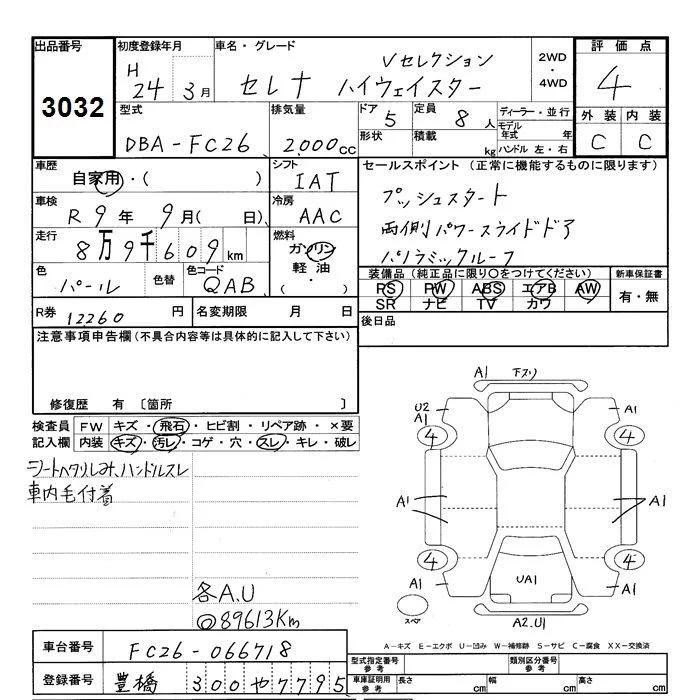 出品番号
3032
初度登録年月
H
24年 3月
車名・グレード
Vセレクション
セレナ ハイウェイスター
2WD
・
4WD
評価点
4
外装 内装
C C
型式
DBA-FC26
排気量
2,000cc
ドア
5
形状
定員
8人
積載
kg
ディーラー・並行
モデル年式 年
ハンドル 左・右
車歴
自家用・( )
シフト
IAT
車検
R 9年 9月( 日)
冷房
AAC
走行
8万9千609km
燃料
ガソリン
軽油
( ・ )
色
パール
色替
色コード
QAB
R券 12260 円
名変期限 月 日
セールスポイント (正常に機能するものに限ります)
プッシュスタート
両側パワースライドドア
パノラミックルーフ
装備品(純正品に限り○をつけてください)
PS PW ABS エアB AW
SR ナビ TV カワ
新車保証書
有・無
後日品
注意事項申告欄(不具合内容等は具体的に記入して下さい)
修復歴 有 〔箇所 〕
検査員記入欄
FW キズ・飛石・ヒビ割・リペア跡・×要
内装 キズ・汚レ・コゲ・穴・スレ・キレ・破レ
シートヘタリ、シミ、ハンドルスレ
車内毛付着
各A.U
◎89613Km
A1 下スリ
U2
A1
A1
4
4
A1
A1
4
4
A1
A1
UA1
スペア
A2.U1
A−キズ E−エクボ U−凹み W−補修跡 S−サビ C−腐食 XX−交換済
車台番号 FC26-066718
登録番号 豊橋 300や7795
型式指定番号
参考
類別区分番号
参考
車庫証明用
参考
長さ cm
幅 cm
高さ cm